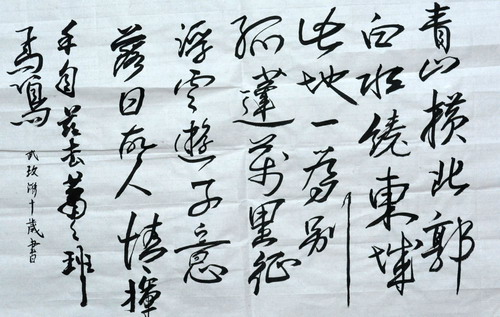 青山橫北郭
白水繞東城
此地一為別
孤蓬萬里征
浮雲遊子意
落日故人情揮
手自茲去蕭々班
馬鳴
十歲書